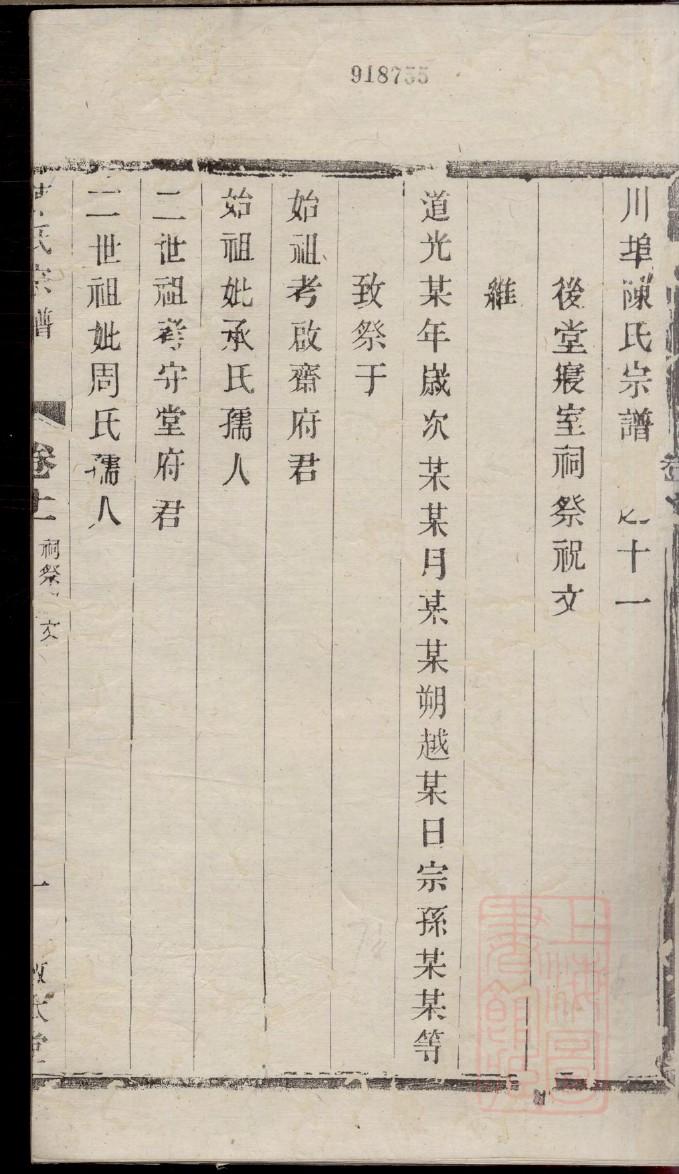 918755
川埠陳氏宗譜 卷十一
後堂寢室祠祭祝文
維
道光某年歲次某某月某某朔越某日宗孫某某等
致祭于
始祖考啟齋府君
始祖妣承氏孺人
二世祖考守堂府君
二世祖妣周氏孺人
氏宗譜 卷十一 祠祭 文 一
上海圖書館藏